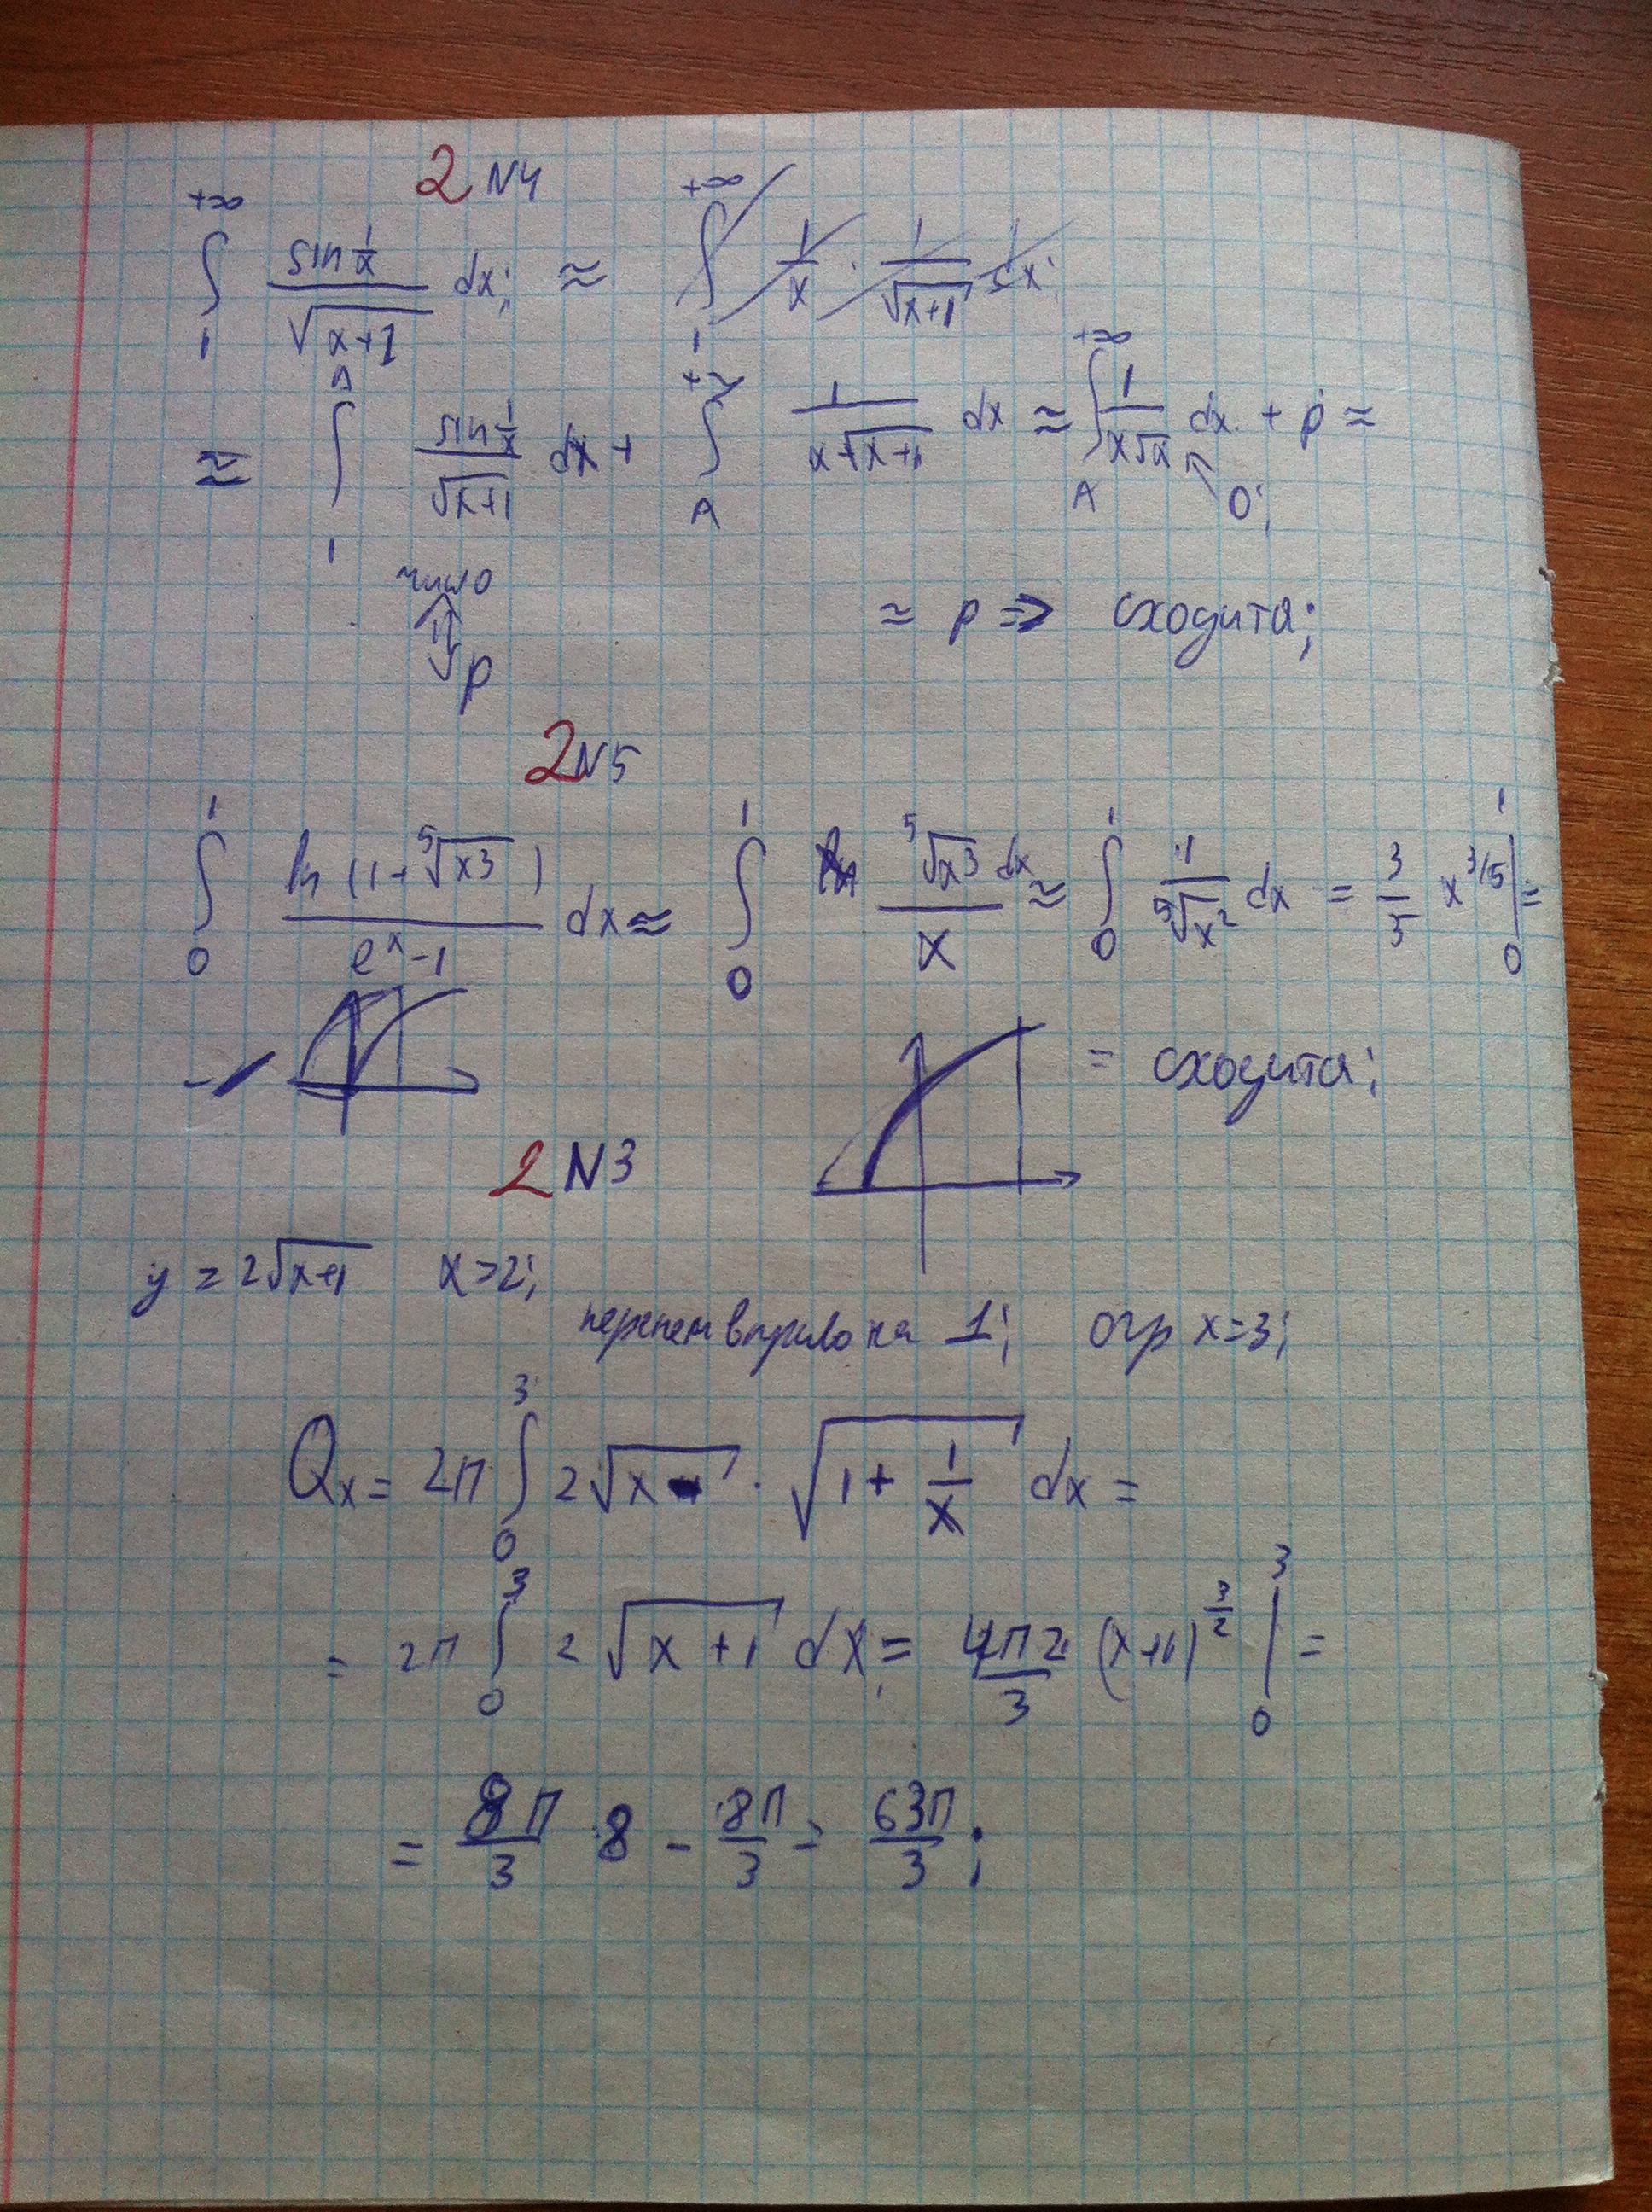 2 N4
+∞ ∫ 1 sin 1/x / √(x+1) dx; ≈ +∞ ∫ 1 1/x · 1/√(x+1)
≈ A ∫ 1 sin 1/x / √(x+1) dx + +∞ ∫ A 1 / x√(x+1) dx ≈ +∞ ∫ A 1 / x√x dx + p ≈
0;
число
p
≈ p ⇒ сходится;
2 N5
1 ∫ 0 ln(1+⁵√x3) / eˣ-1 dx ≈ 1 ∫ 0 ⁵√x3 / x dx ≈ 1 ∫ 0 1 / ⁵√x² dx = 3/5 x^3/5 | 1 0 =
= сходится;
2 N3
y = 2√(x+1) x=2;
на 1; огр x=3;
Qx = 2π 3 ∫ 0 2√x · √(1 + 1/x) dx =
= 2π 3 ∫ 0 2√(x+1) dx = 4π2/3 (x+1)^3/2 | 3 0 =
= 8π/3 · 8 - 8π/3 = 63π/3;